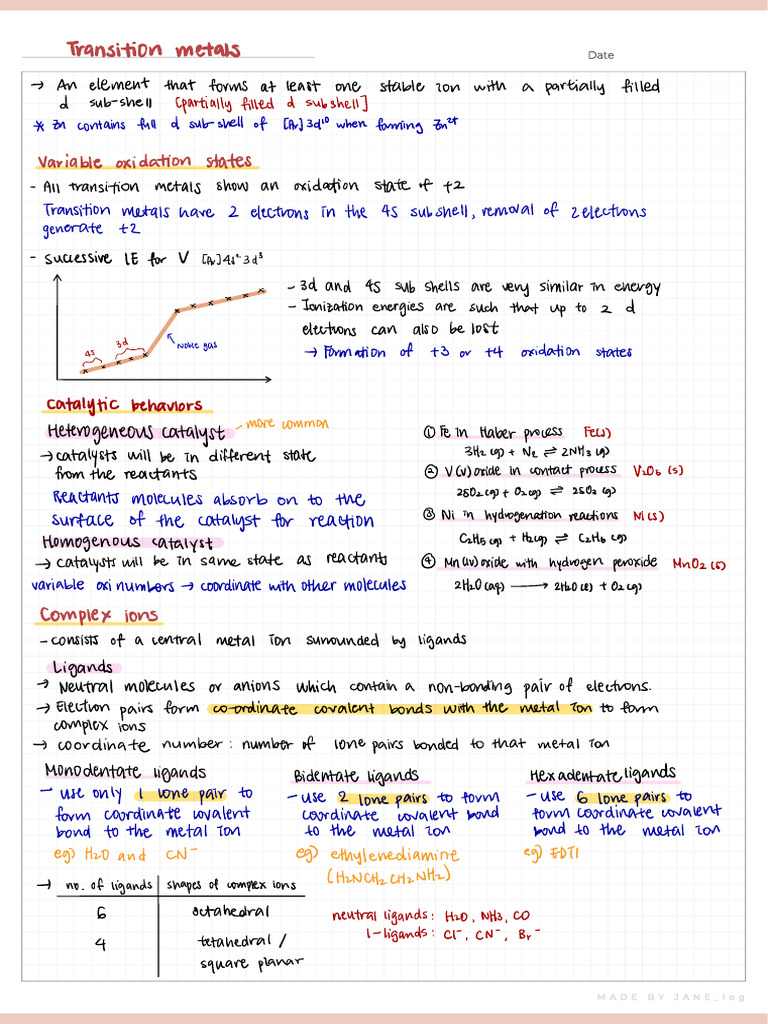 Transition metals
Date
→ An element that forms at least one stable ion with a partially filled
d sub-shell [partially filled d subshell]
* Zn contains full d sub-shell of [Ar]3d¹⁰ when forming Zn²⁺
Variable oxidation states
- All transition metals show an oxidation state of +2
Transition metals have 2 electrons in the 4s subshell, removal of 2 electrons
generate +2
- Successive IE for V [Ar]4s²3d³
4s
3d
noble gas
- 3d and 4s sub shells are very similar in energy
- Ionization energies are such that up to 2 d
electrons can also be lost
→ Formation of +3 or +4 oxidation states
Catalytic behaviors
Heterogeneous catalyst - more common
→ catalysts will be in different state
from the reactants
Reactants molecules absorb on to the
surface of the catalyst for reaction
Homogenous catalyst
→ catalysts will be in same state as reactants
variable oxi numbers → coordinate with other molecules
① Fe in Haber process Fe(s)
3H₂(g) + N₂ ⇌ 2NH₃(g)
② V(v)oxide in contact process V₂O₅(s)
2SO₂(g) + O₂(g) ⇌ 2SO₂(g)
③ Ni in hydrogenation reactions Ni(s)
C₂H₅(g) + H₂(g) ⇌ C₂H₆(g)
④ Mn(iv)oxide with hydrogen peroxide MnO₂(s)
2H₂O(aq) → 2H₂O(l) + O₂(g)
Complex ions
- consists of a central metal ion surrounded by ligands
Ligands
→ Neutral molecules or anions which contain a non-bonding pair of electrons.
→ Electron pairs form co-ordinate covalent bonds with the metal ion to form
complex ions
→ coordinate number: number of lone pairs bonded to that metal ion
Monodentate ligands
- use only 1 lone pair to
form coordinate covalent
bond to the metal ion
eg) H₂O and CN⁻
Bidentate ligands
- use 2 lone pairs to form
coordinate covalent bond
to the metal ion
eg) ethylenediamine
(H₂NCH₂CH₂NH₂)
Hexadentate ligands
- use 6 lone pairs to
form coordinate covalent
bond to the metal ion
eg) EDTA
→ no. of ligands shapes of complex ions
6 octahedral
4 tetahedral /
square planar
neutral ligands: H₂O, NH₃, CO
1-ligands: Cl⁻, CN⁻, Br⁻
MADE BY JANE_log